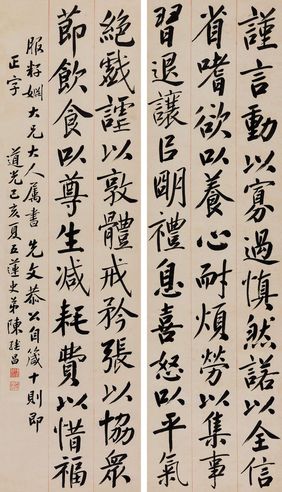 謹言動以寡過慎然諾以全信
省嗜欲㕥養心耐煩勞以集事
習退讓㠯朙禮息喜怒以平氣
絕戲謔以敦體戒矜張以協眾
節飲食㕥尊生減耗費以惜福
服籽姻大兄大人屬書 先文恭公自箴十則即
正字 道光己亥夏五蓮史弟陳繼昌